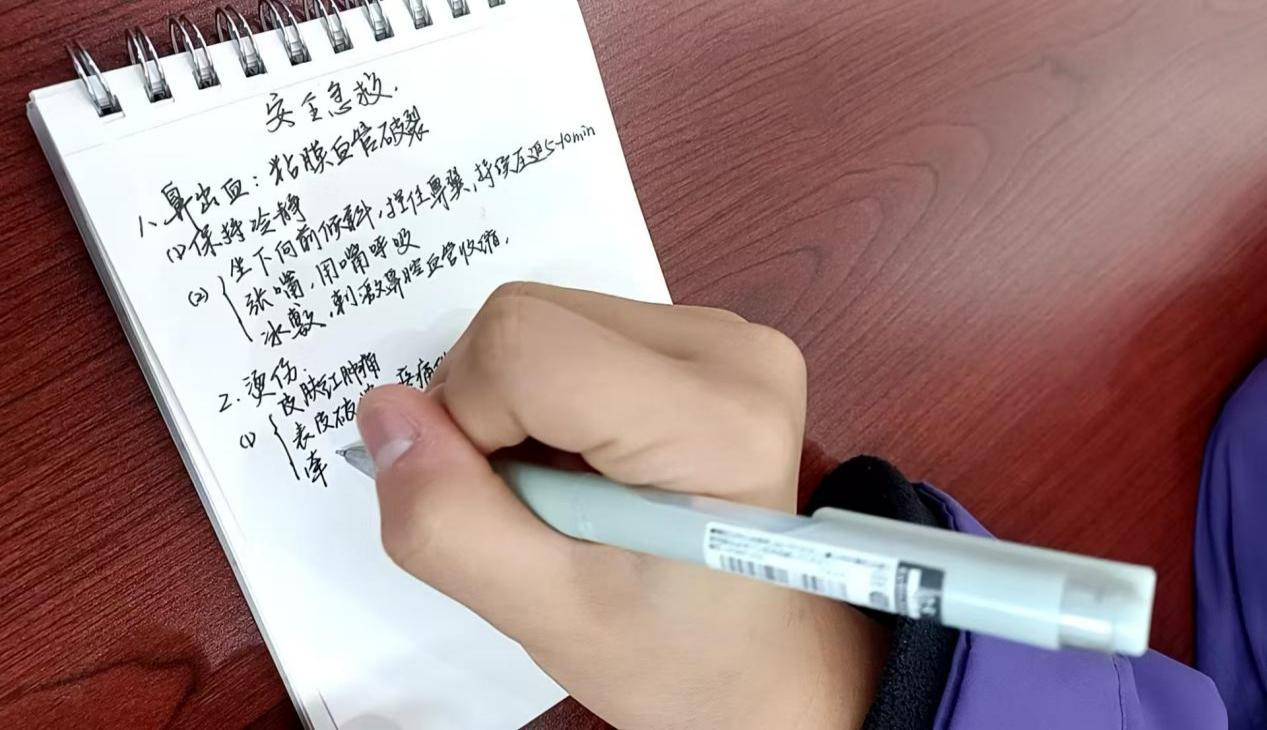 安全急救.
1、鼻出血：粘膜血管破裂
(1)保持冷静
(2) 坐下向前倾斜，捏住鼻翼，持续压迫5-10min
张嘴，用嘴呼吸
冰敷，刺激鼻腔血管收缩，
2. 烫伤：
(1) 皮肤红肿
表皮破 疼痛
牵